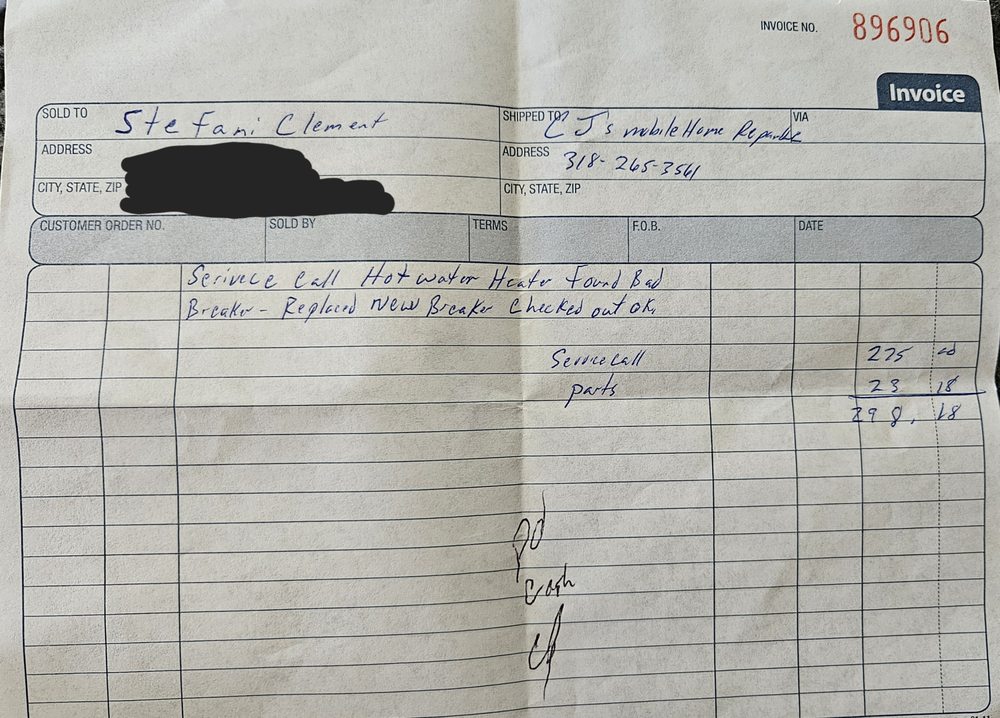 INVOICE NO. 896906
Invoice
SOLD TO Stefani Clement
SHIPPED TO CJ's mobile Home
VIA
ADDRESS
ADDRESS 318-265-3561
CITY, STATE, ZIP
CITY, STATE, ZIP
CUSTOMER ORDER NO. SOLD BY TERMS F.O.B. DATE
Serivece Call Hot water Heater Found Bad
Breaker - Replaced New Breaker Checked out ok.
Service call 275 00
parts 23 18
298.18
pd
cash